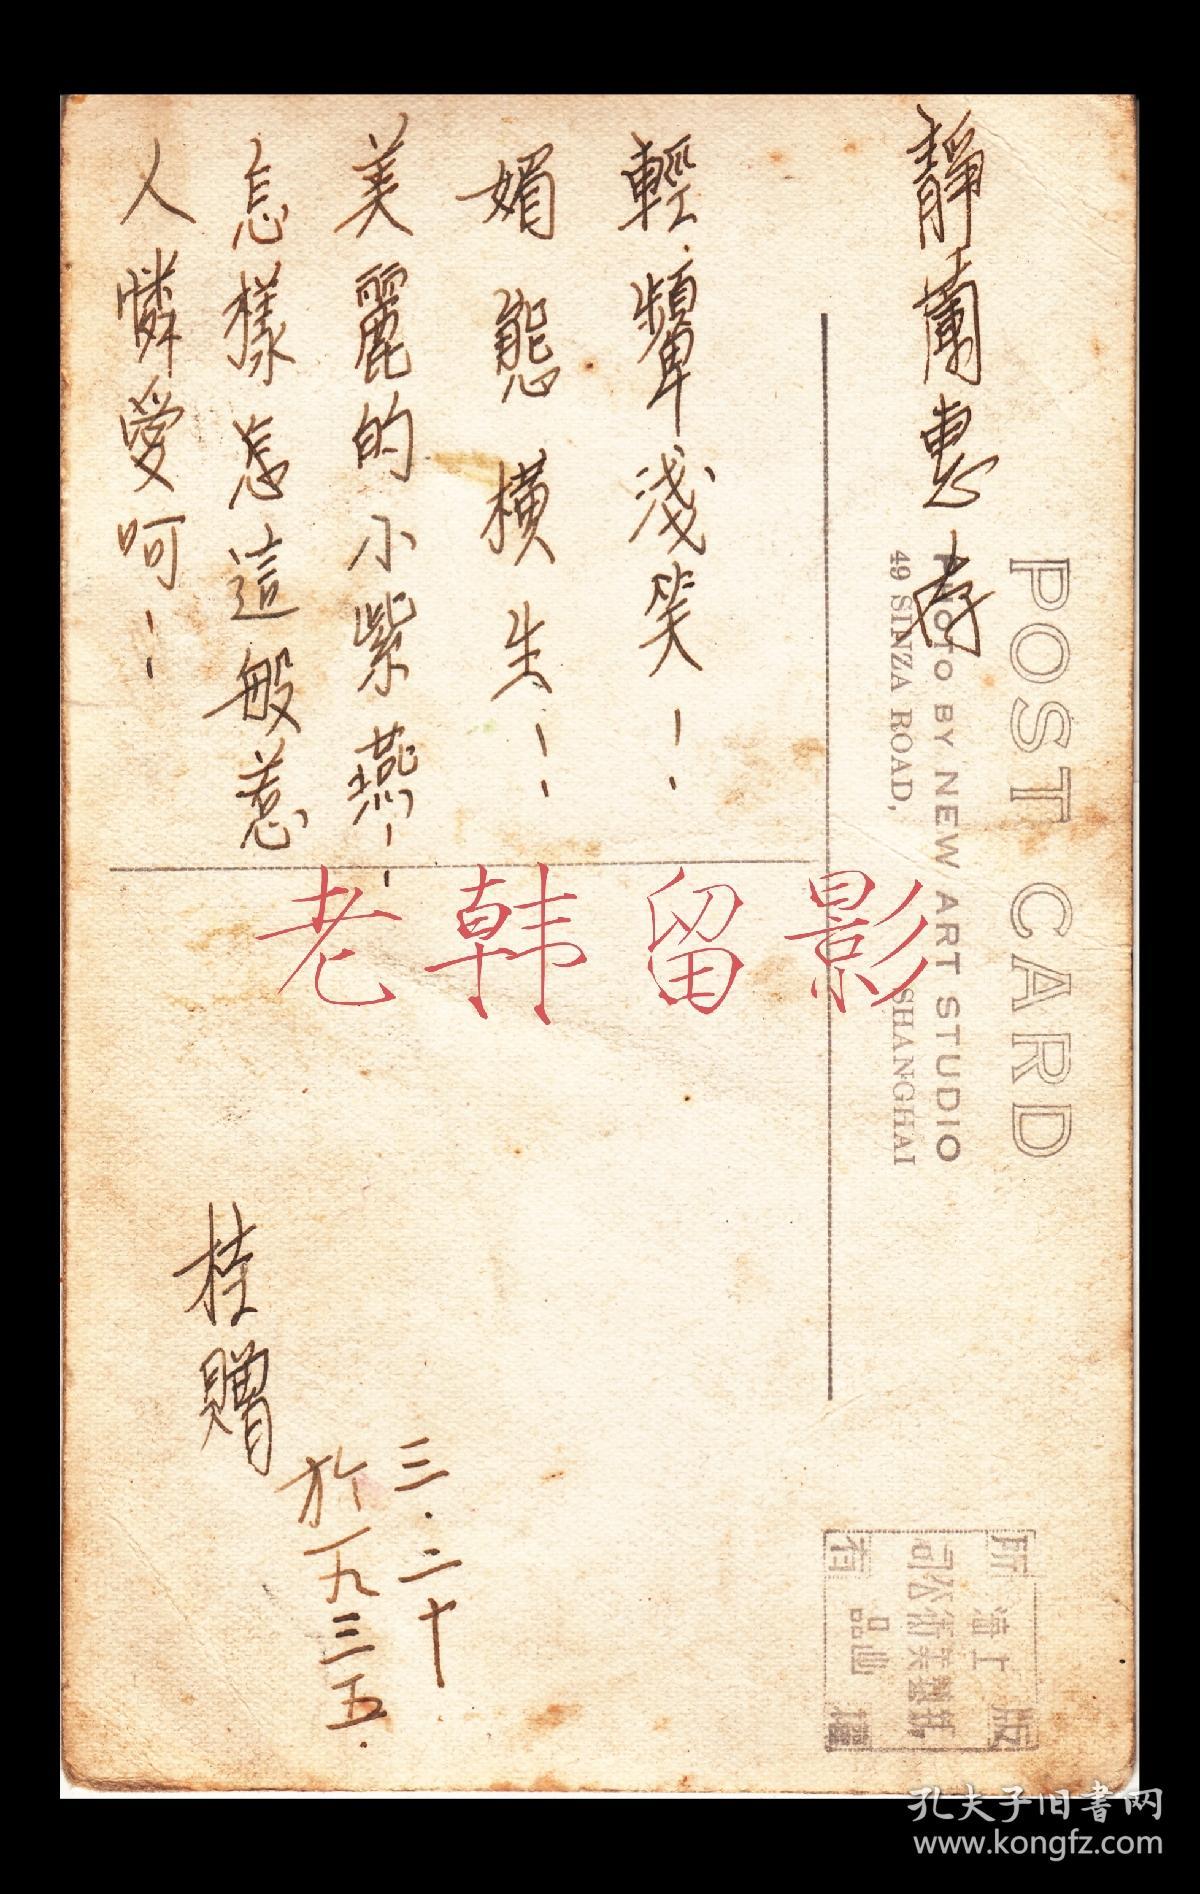 靜蘭惠存
輕顰淺笑——．
媚態橫生——．
美麗的小紫燕——．
怎樣怎這般惹
人憐愛呵——
桂贈
三．二十
於一九三五．
POST CARD
PHOTO BY NEW ART STUDIO
49 SINZA ROAD, SHANGHAI
版權所有
上海
美術公司
出品
老韩留影
孔夫子旧書网
www.kongfz.com